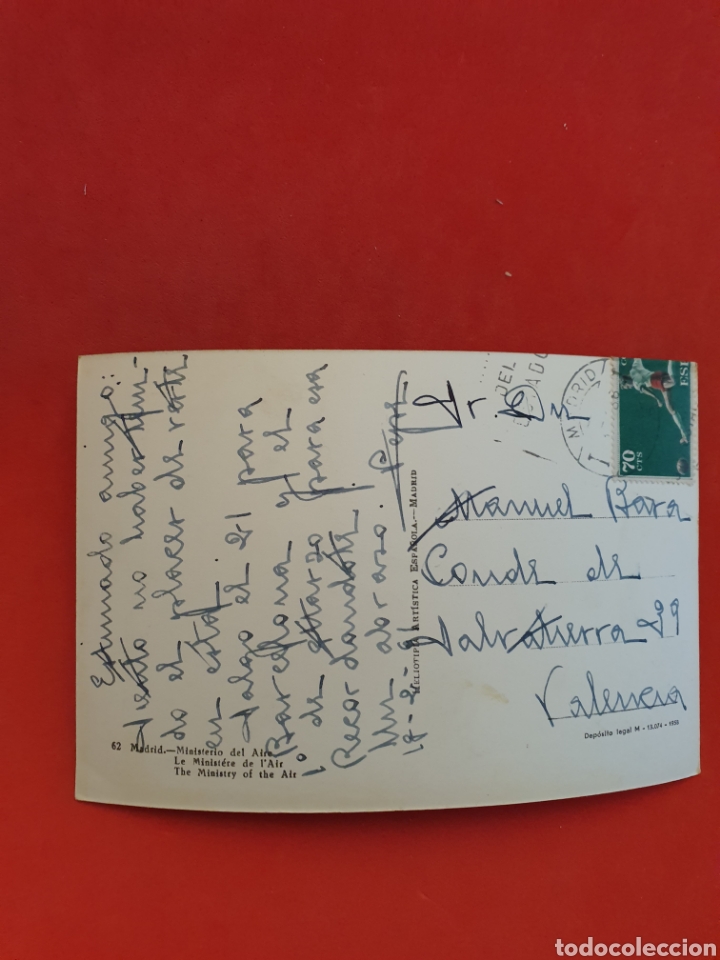 Estimado amigo:
siento no haber teni-
do el placer de verte
en esta.
Salgo el 21 para
Barcelona y el
1º de Marzo para esa
Recordandote
Un abrazo. Pepe
18-2-61
62 Madrid.—Ministerio del Aire
Le Ministére de l'Air
The Ministry of the Air
HELIOTIPIA ARTÍSTICA ESPAÑOLA.—MADRID
DEL
MADRID
70
CTS
ESP
Manuel Bara
Conde de
Salvatierra 29
Valencia
Depósito legal M - 13.074 - 1958
todocoleccion